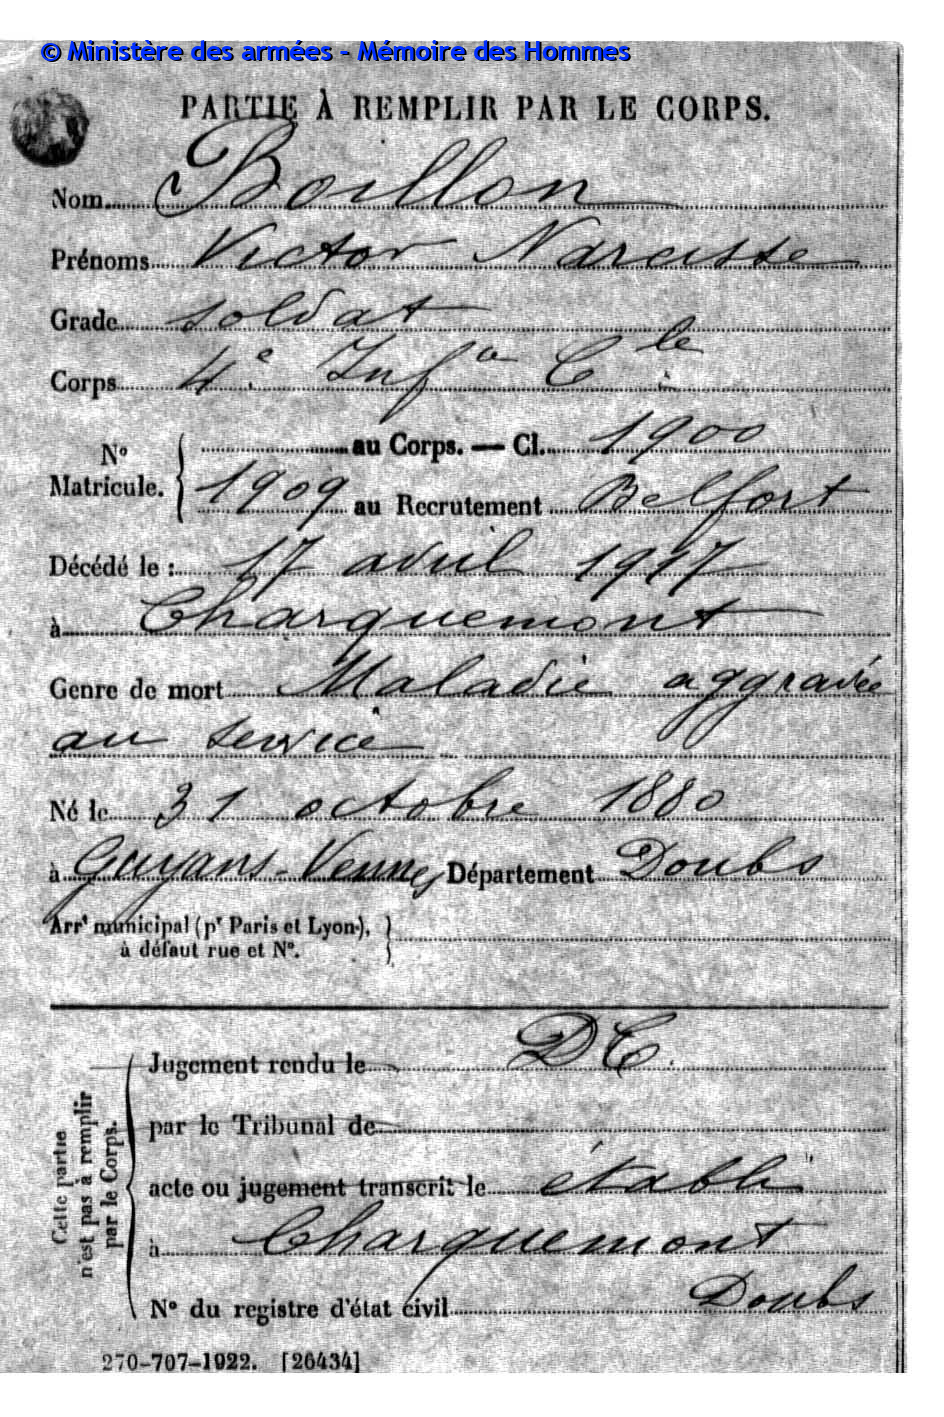 © Ministère des armées - Mémoire des Hommes
PARTIE À REMPLIR PAR LE CORPS.
Nom Boillon
Prénoms Victor Narcisse
Grade soldat
Corps 4e Infie Cle
No Matricule. { au Corps. — Cl. 1900
1909 au Recrutement Belfort
Décédé le : 17 avril 1917
à Charquemont
Genre de mort Maladie aggravée
au service
Né le 31 octobre 1880
à Guyans-Vennes Département Doubs
Arrt municipal (pr Paris et Lyon),
à défaut rue et No.
Cette partie n'est pas à remplir par le Corps.
Jugement rendu le DC.
par le Tribunal de
acte ou jugement transcrit le établi
à Charquemont
No du registre d'état civil Doubs
270-707-1922. [26434]